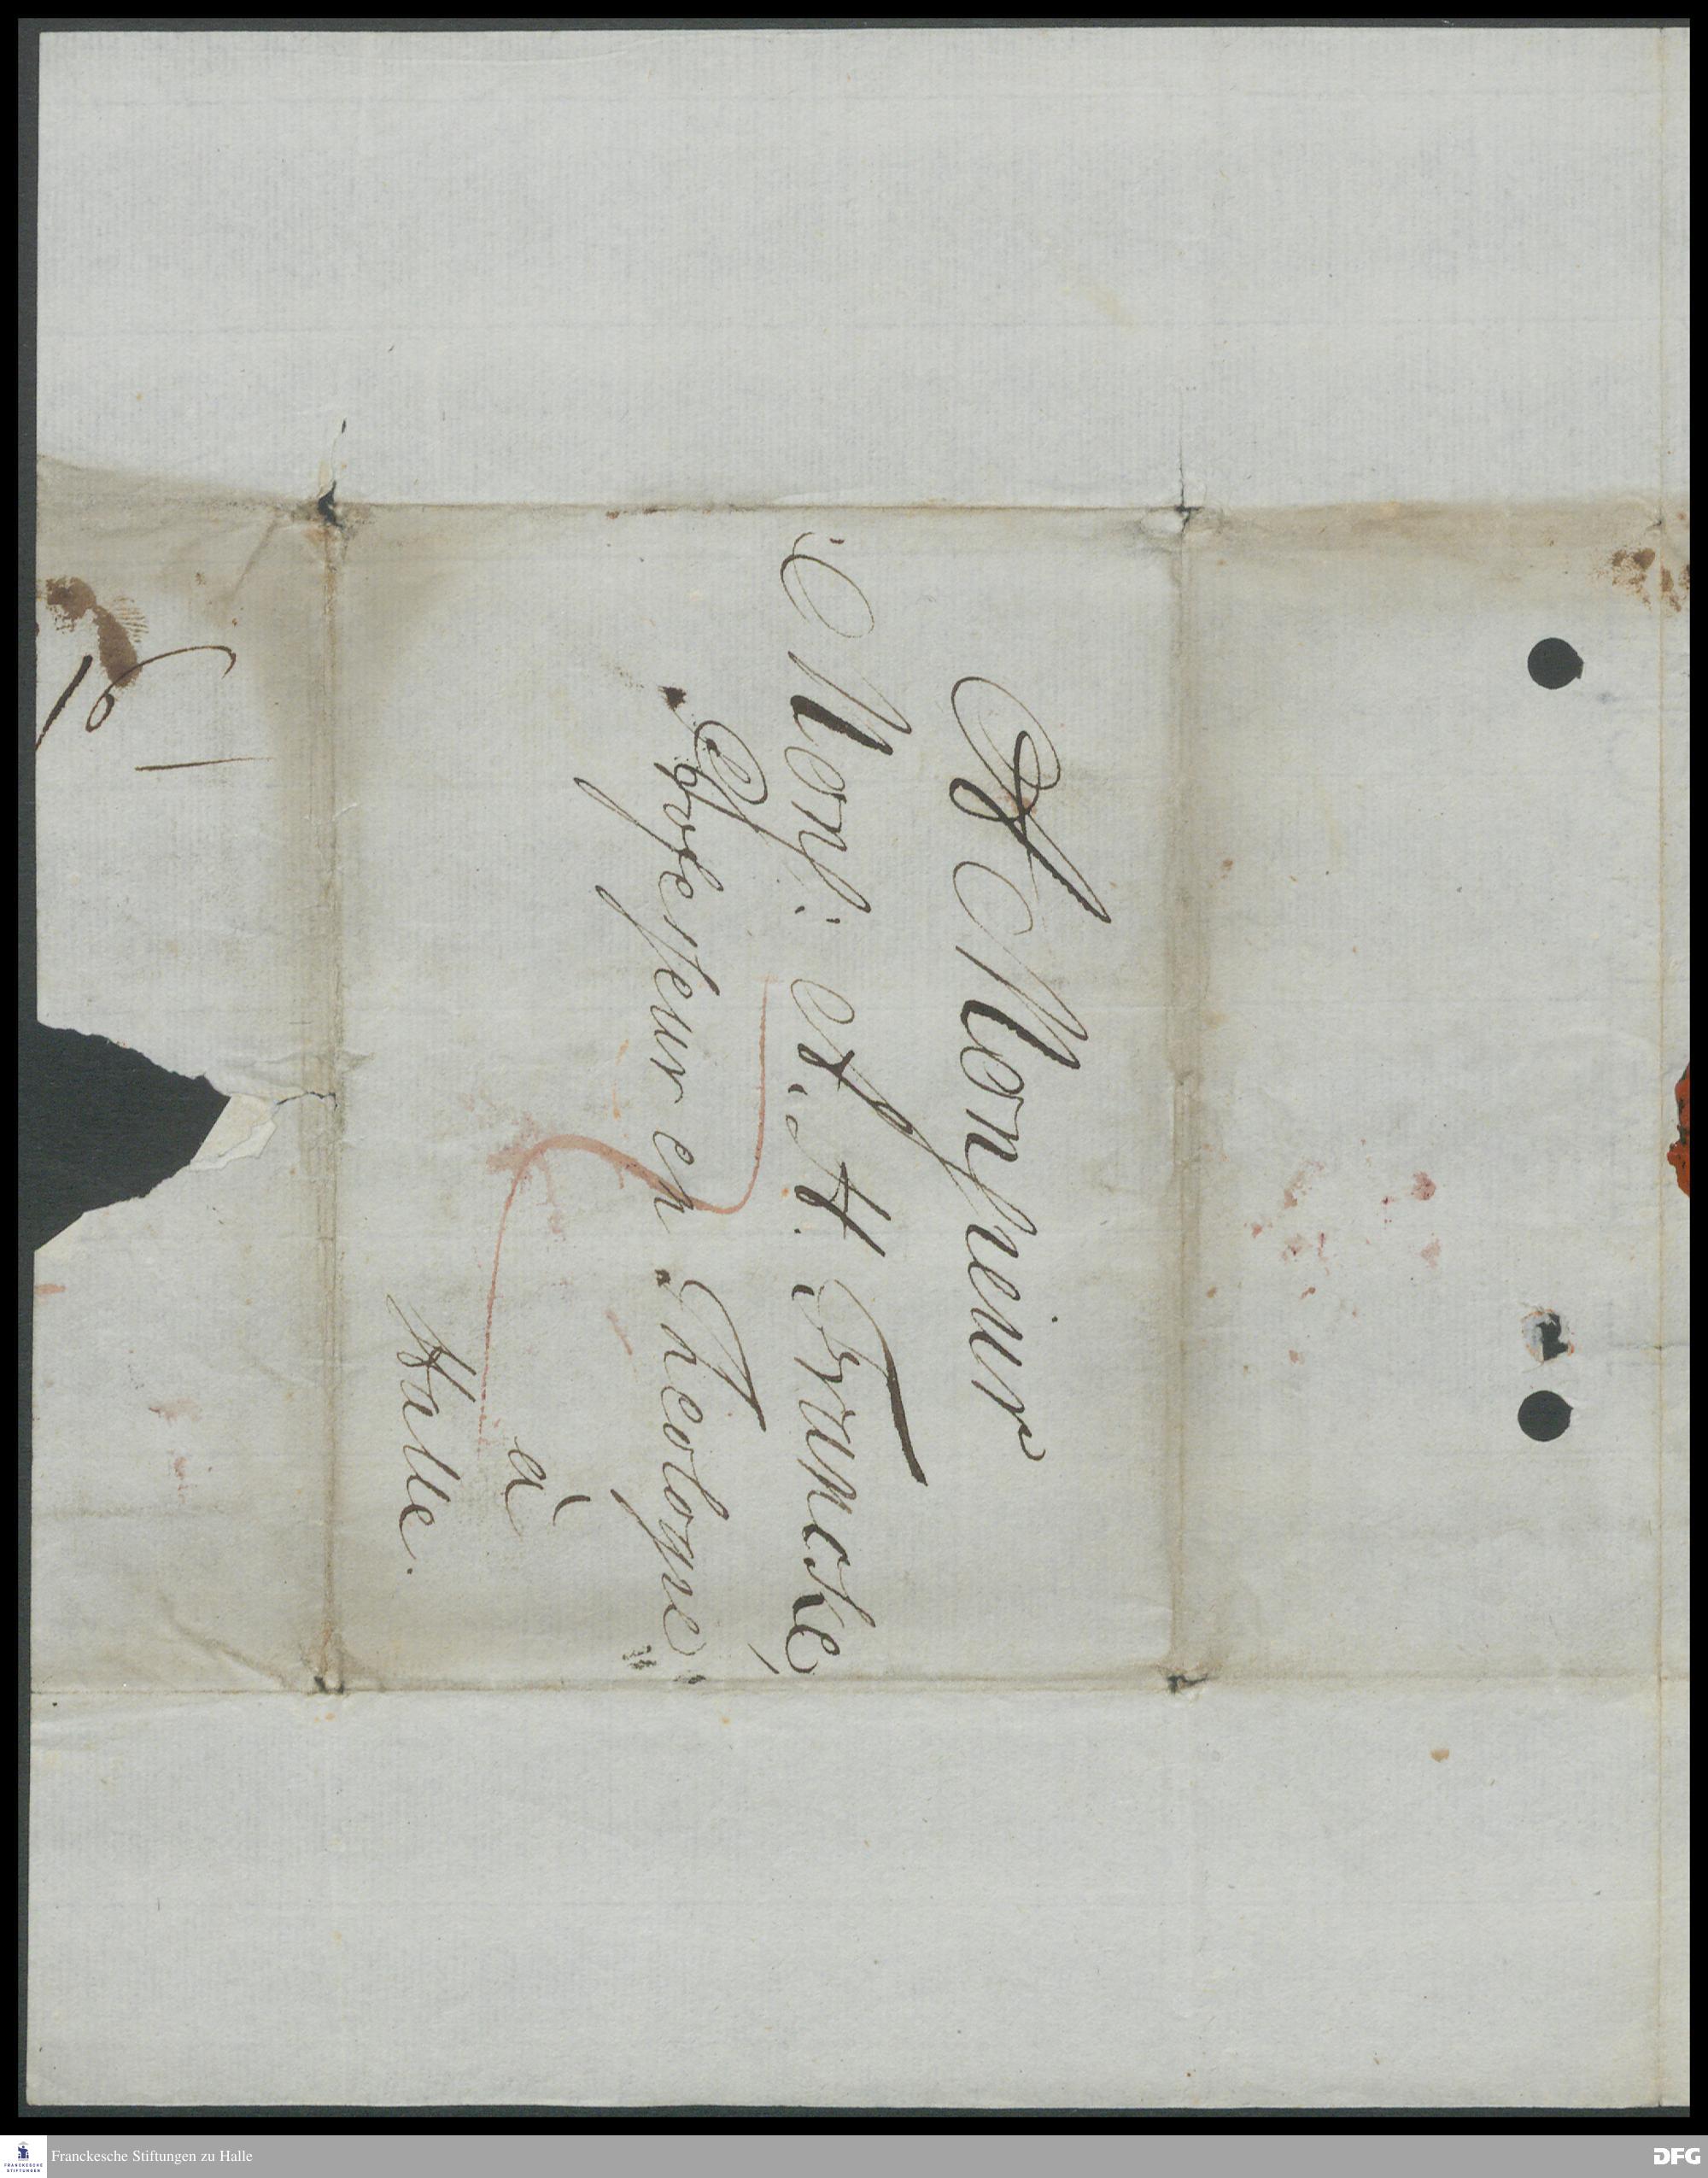 A Monsieur
Mons: A. H. Francke,
Professeur en Theologie
à
Halle.
16
Franckesche Stiftungen zu Halle
FRANCKESCHE
STIFTUNGEN
DFG